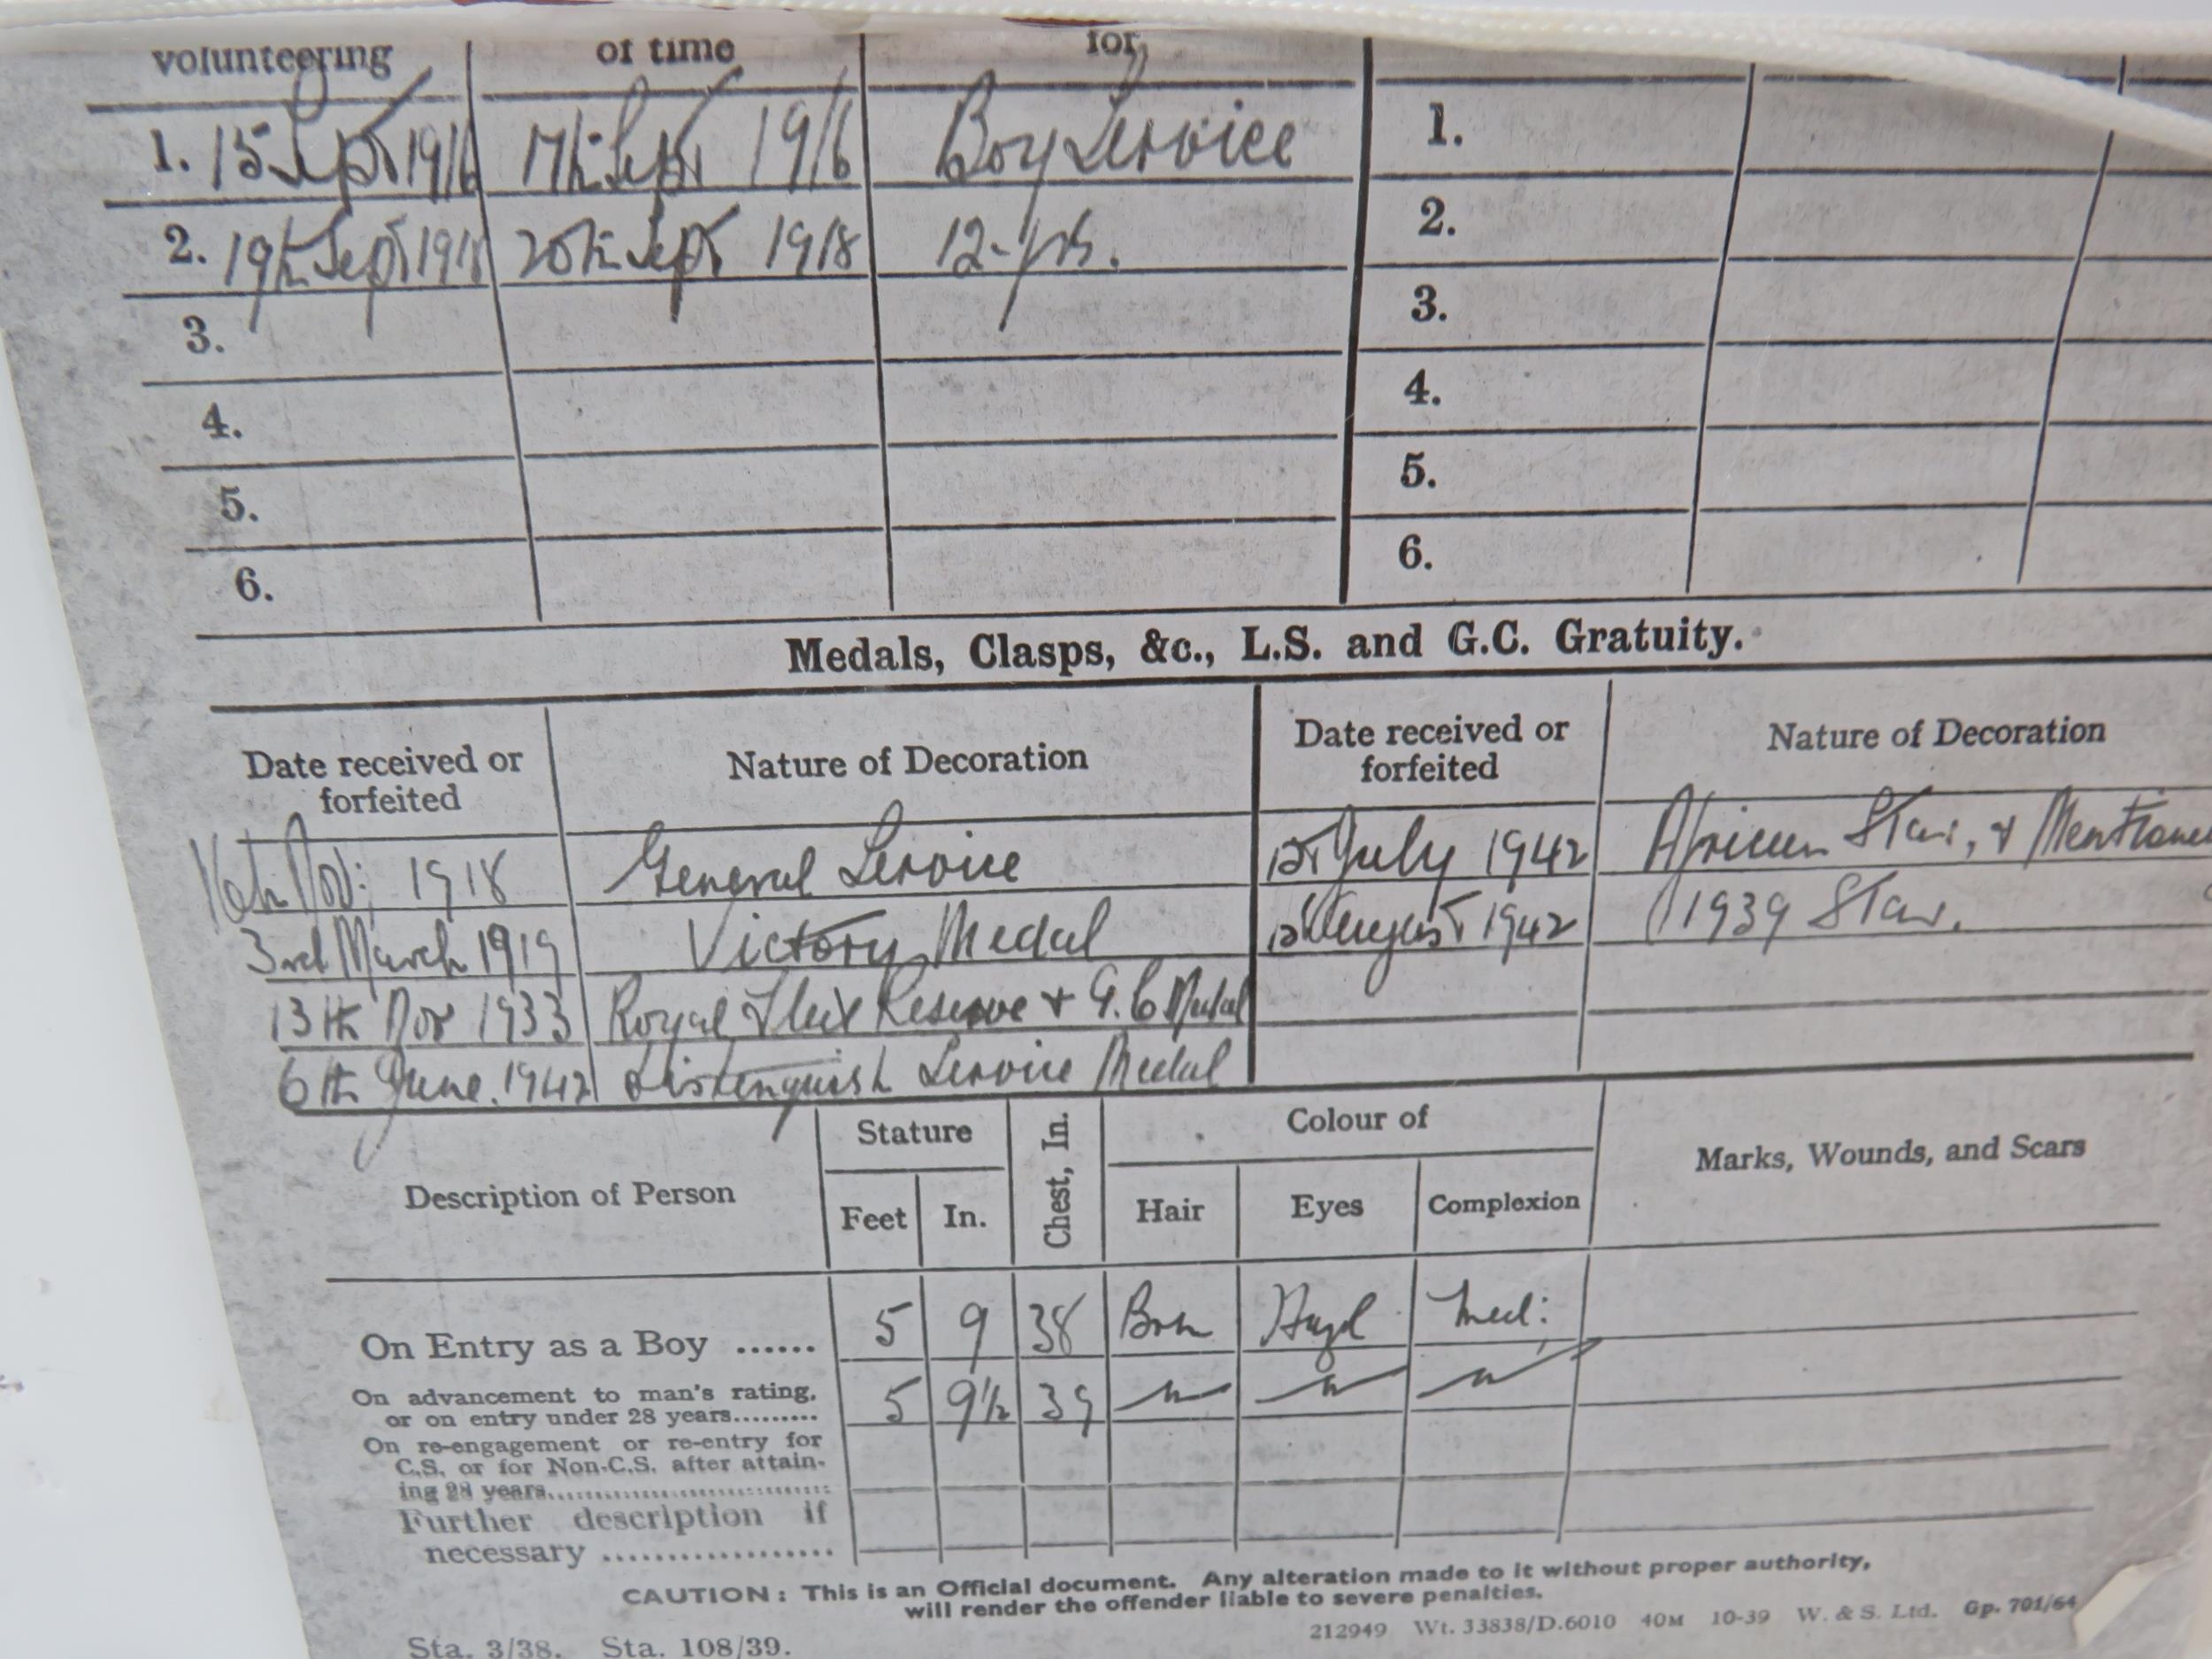 volunteering of time for
1. 15 Sept 1916 17th Sept 1916 Boy Service 1.
2. 19th Sept 1918 20th Sept 1918 12-yrs. 2.
3. 3.
4. 4.
5. 5.
6. 6.
Medals, Clasps, &c., L.S. and G.C. Gratuity.
Date received or forfeited Nature of Decoration Date received or forfeited Nature of Decoration
16th Nov: 1918 General Service 1st July 1942 African Star, & Mentioned
3rd March 1919 Victory Medal August 1942 1939 Star.
13th Nov 1933 Royal Fleet Reserve & G.C Medal
6th June. 1942 Distinguish Service Medal
Description of Person Stature Feet In. Chest, In. Colour of Hair Eyes Complexion Marks, Wounds, and Scars
On Entry as a Boy ...... 5 9 38 Brn Hazel Med:
On advancement to man's rating,
or on entry under 28 years......... 5 9½ 39 " " "
On re-engagement or re-entry for
C.S. or for Non-C.S. after attain-
ing 28 years..............................
Further description if
necessary ..................
CAUTION : This is an Official document. Any alteration made to it without proper authority,
will render the offender liable to severe penalties.
212949 Wt. 33838/D.6010 40M 10-39 W. & S. Ltd. Gp. 701/64
Sta. 3/38. Sta. 108/39.